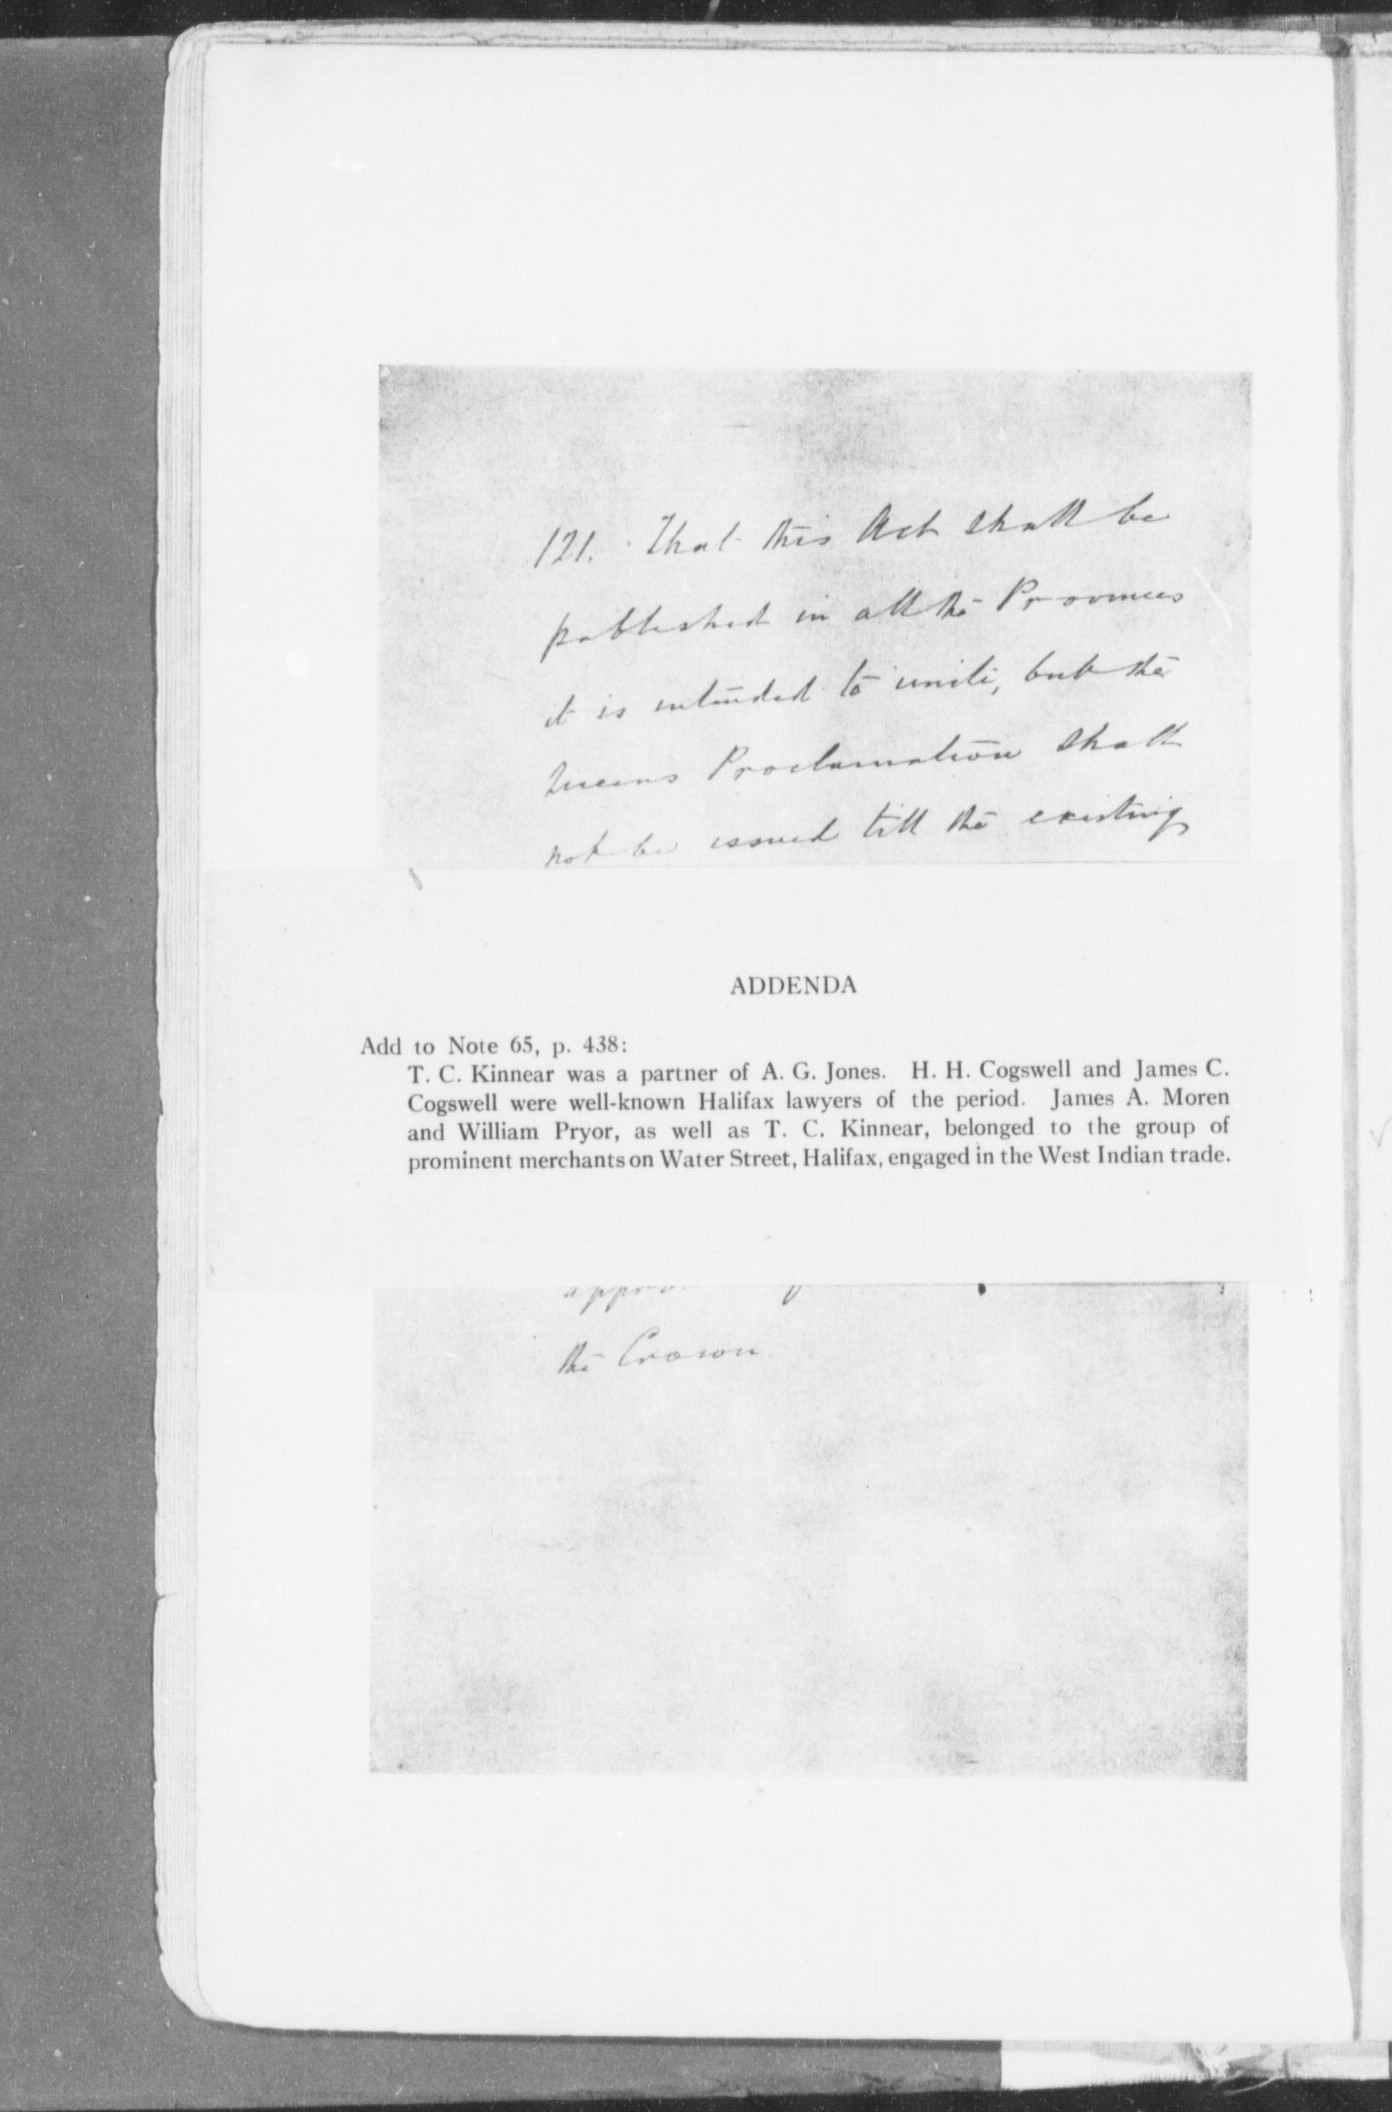 121. That this Act shall be
published in all the Provinces
it is intended to unite, but the
Queens Proclamation shall
not be issued till the existing
ADDENDA
Add to Note 65, p. 438:
T. C. Kinnear was a partner of A. G. Jones. H. H. Cogswell and James C.
Cogswell were well-known Halifax lawyers of the period. James A. Moren
and William Pryor, as well as T. C. Kinnear, belonged to the group of
prominent merchants on Water Street, Halifax, engaged in the West Indian trade.
the Crown